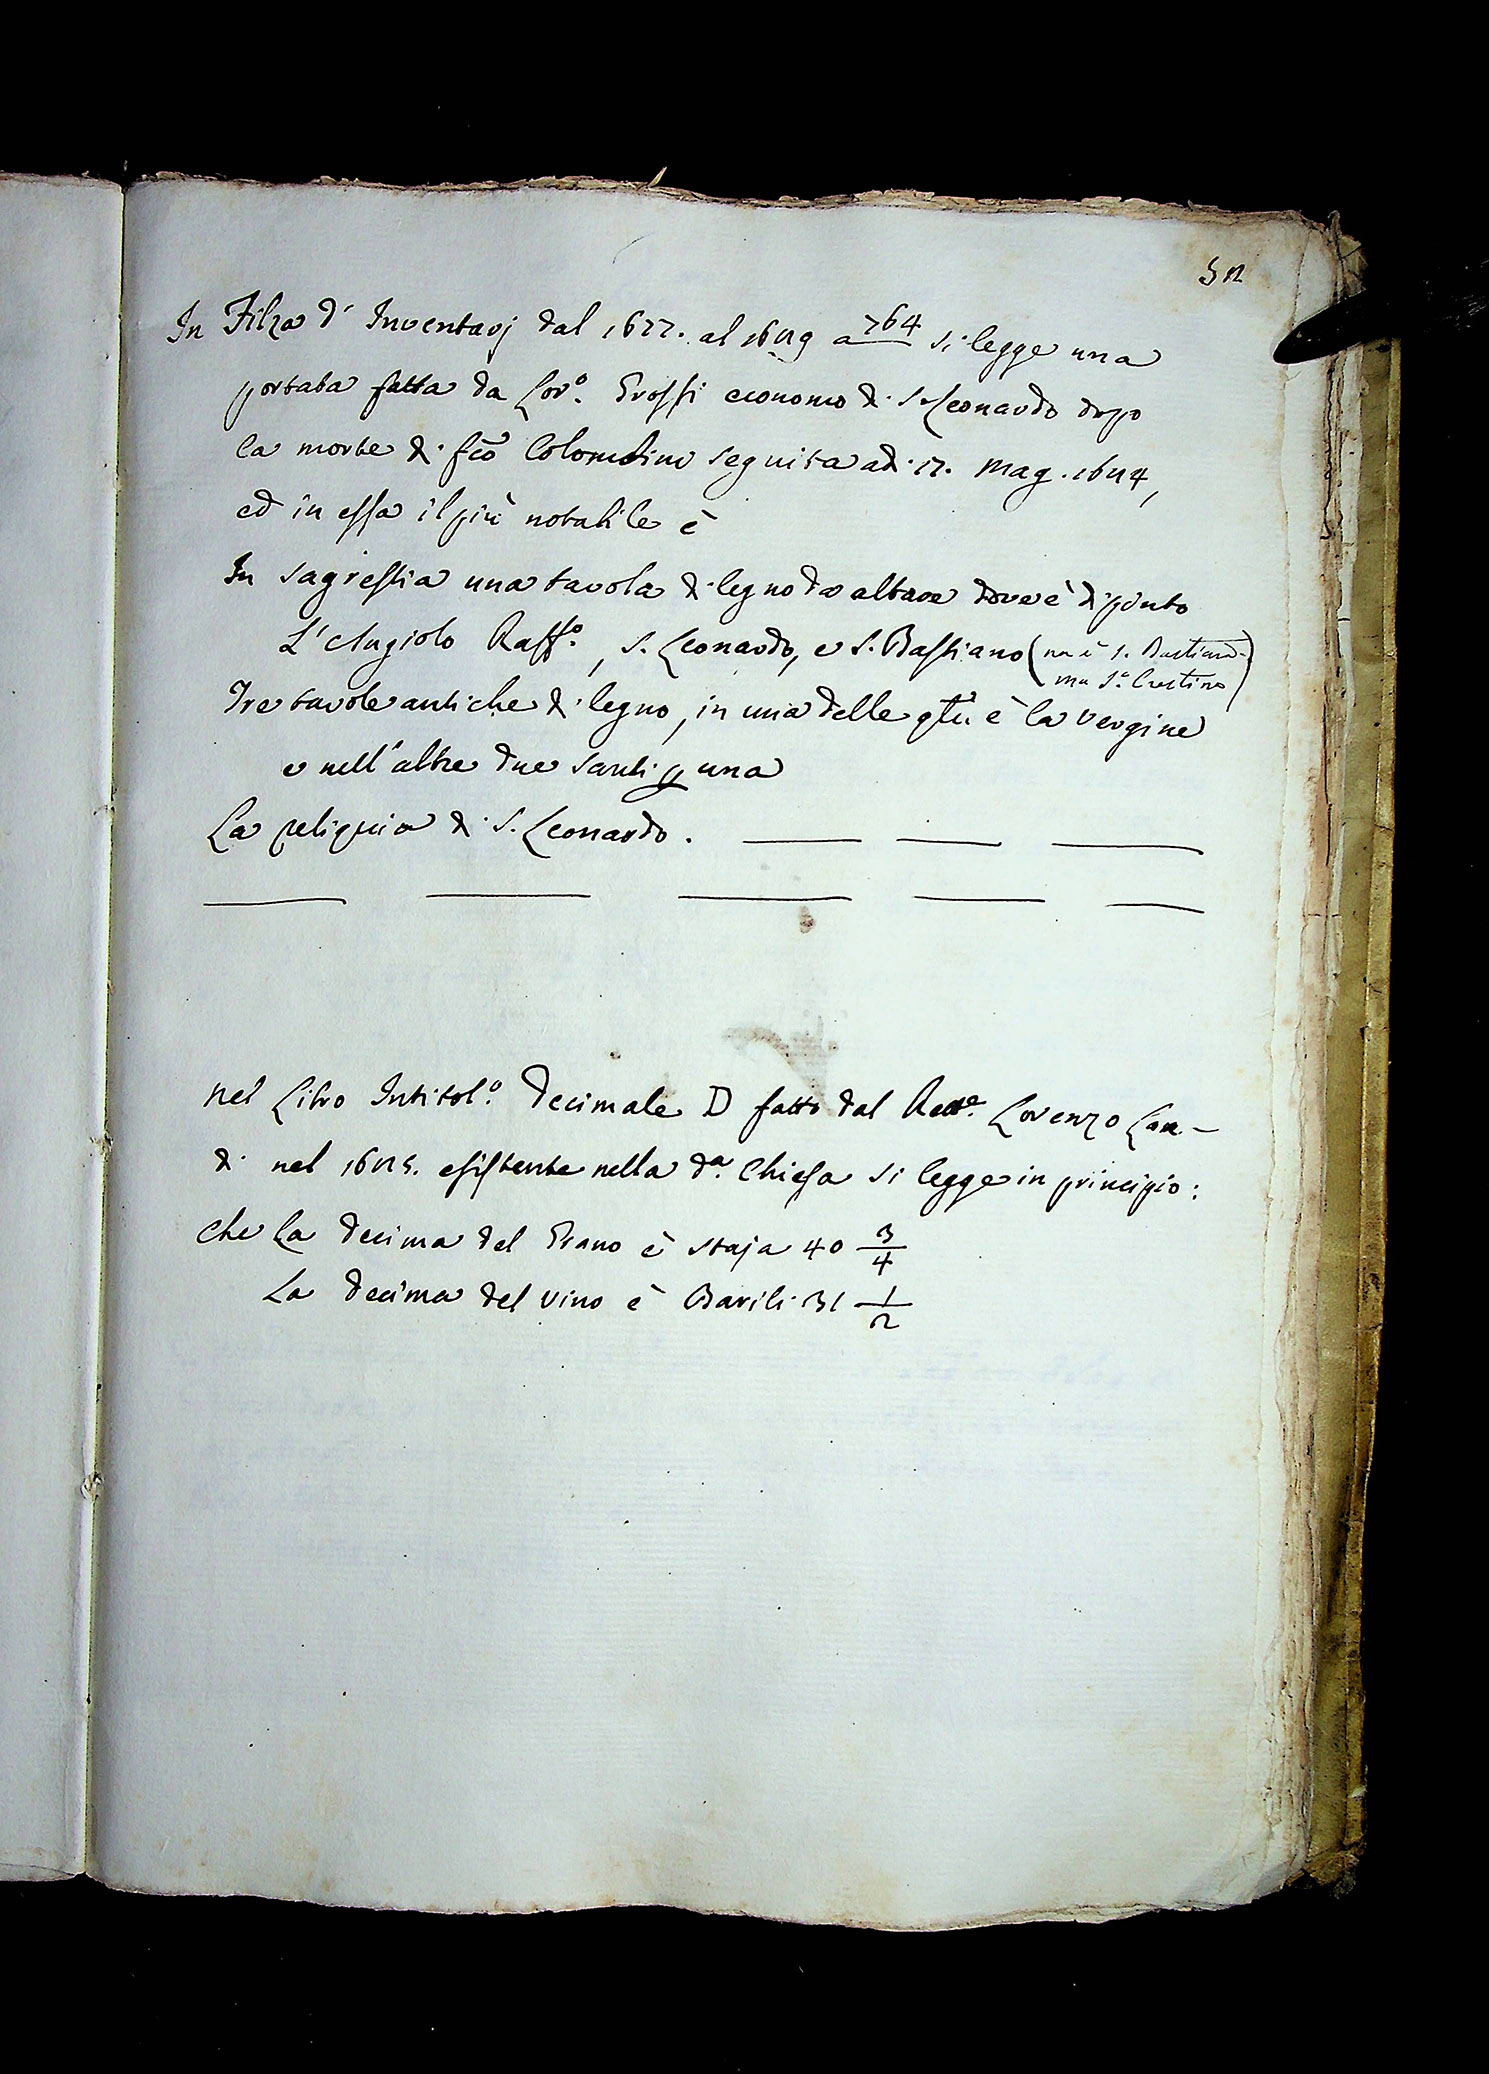 52
In Filza d' Inventarj dal 1622. al 1629 a 764 si legge una
portata fatta da Lor.º Grossi economo di S. Leonardo dopo
la morte di Fco Colombino seguita adi 17. Mag. 1624,
ed in essa il più notabile è
In sagrestia una tavola di legno da altare dove è dipinto
L'Angiolo Raff.º, S. Leonardo, e S. Bastiano (non è S. Bastiano
ma S.º Crestino)
Tre tavole antiche di legno, in una delle qli è la Vergine
e nell'altre due santi p una
La reliquia di S. Leonardo.
Nel Libro Intitol.º Decimale D fatto dal Rett.e Lorenzo Lan-
di nel 1625. esistente nella d.a Chiesa si legge in principio:
che La decima del Grano è staja 40 3/4
La decima del vino è Barili 31 1/2